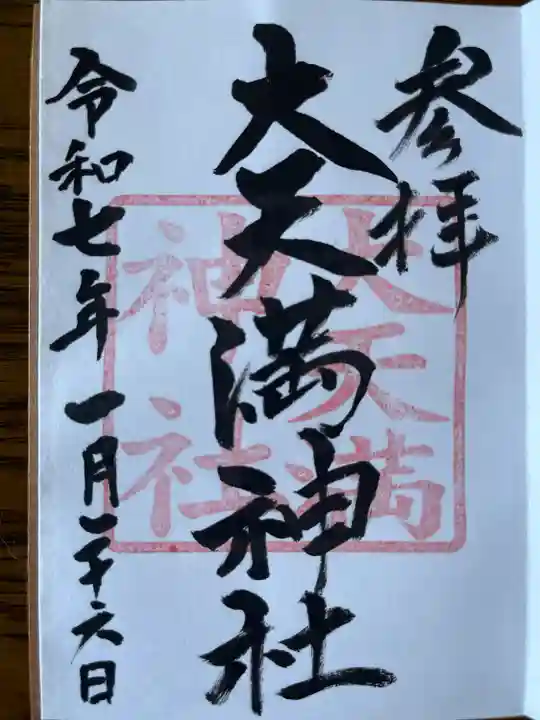 参拝
大天満神社
大天満
神社
令和七年一月二十六日